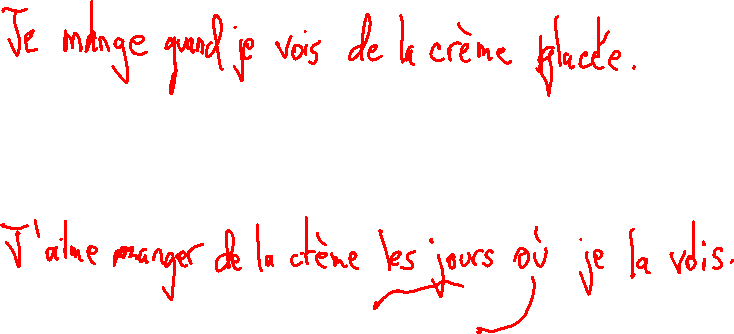 Je mange quand je vois de la crème glacée.
J'aime manger de la crème les jours où je la vois.